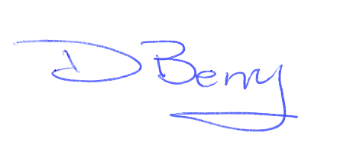 D Berry